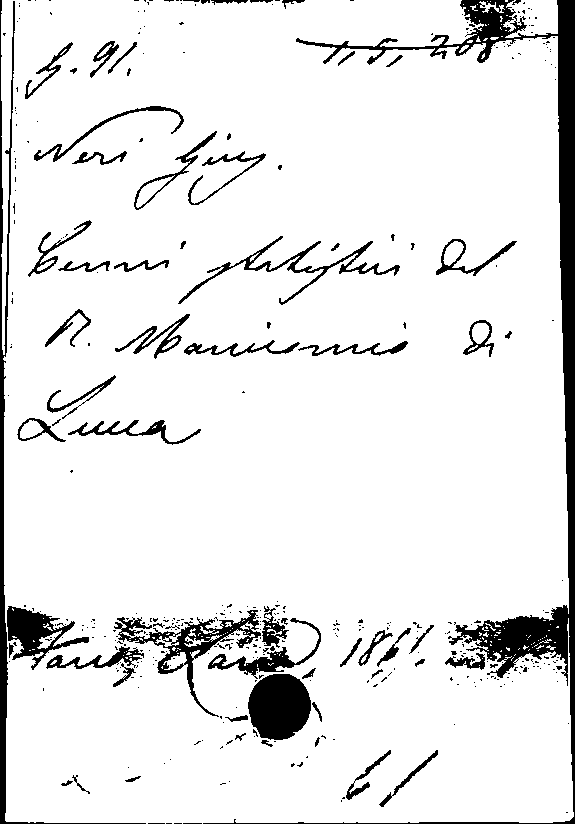 G. 91. 1, 5, 208
Neri Gius.
Cenni statistici del
R. Manicomio di
Lucca
Fano, Lana, 1861. in
61